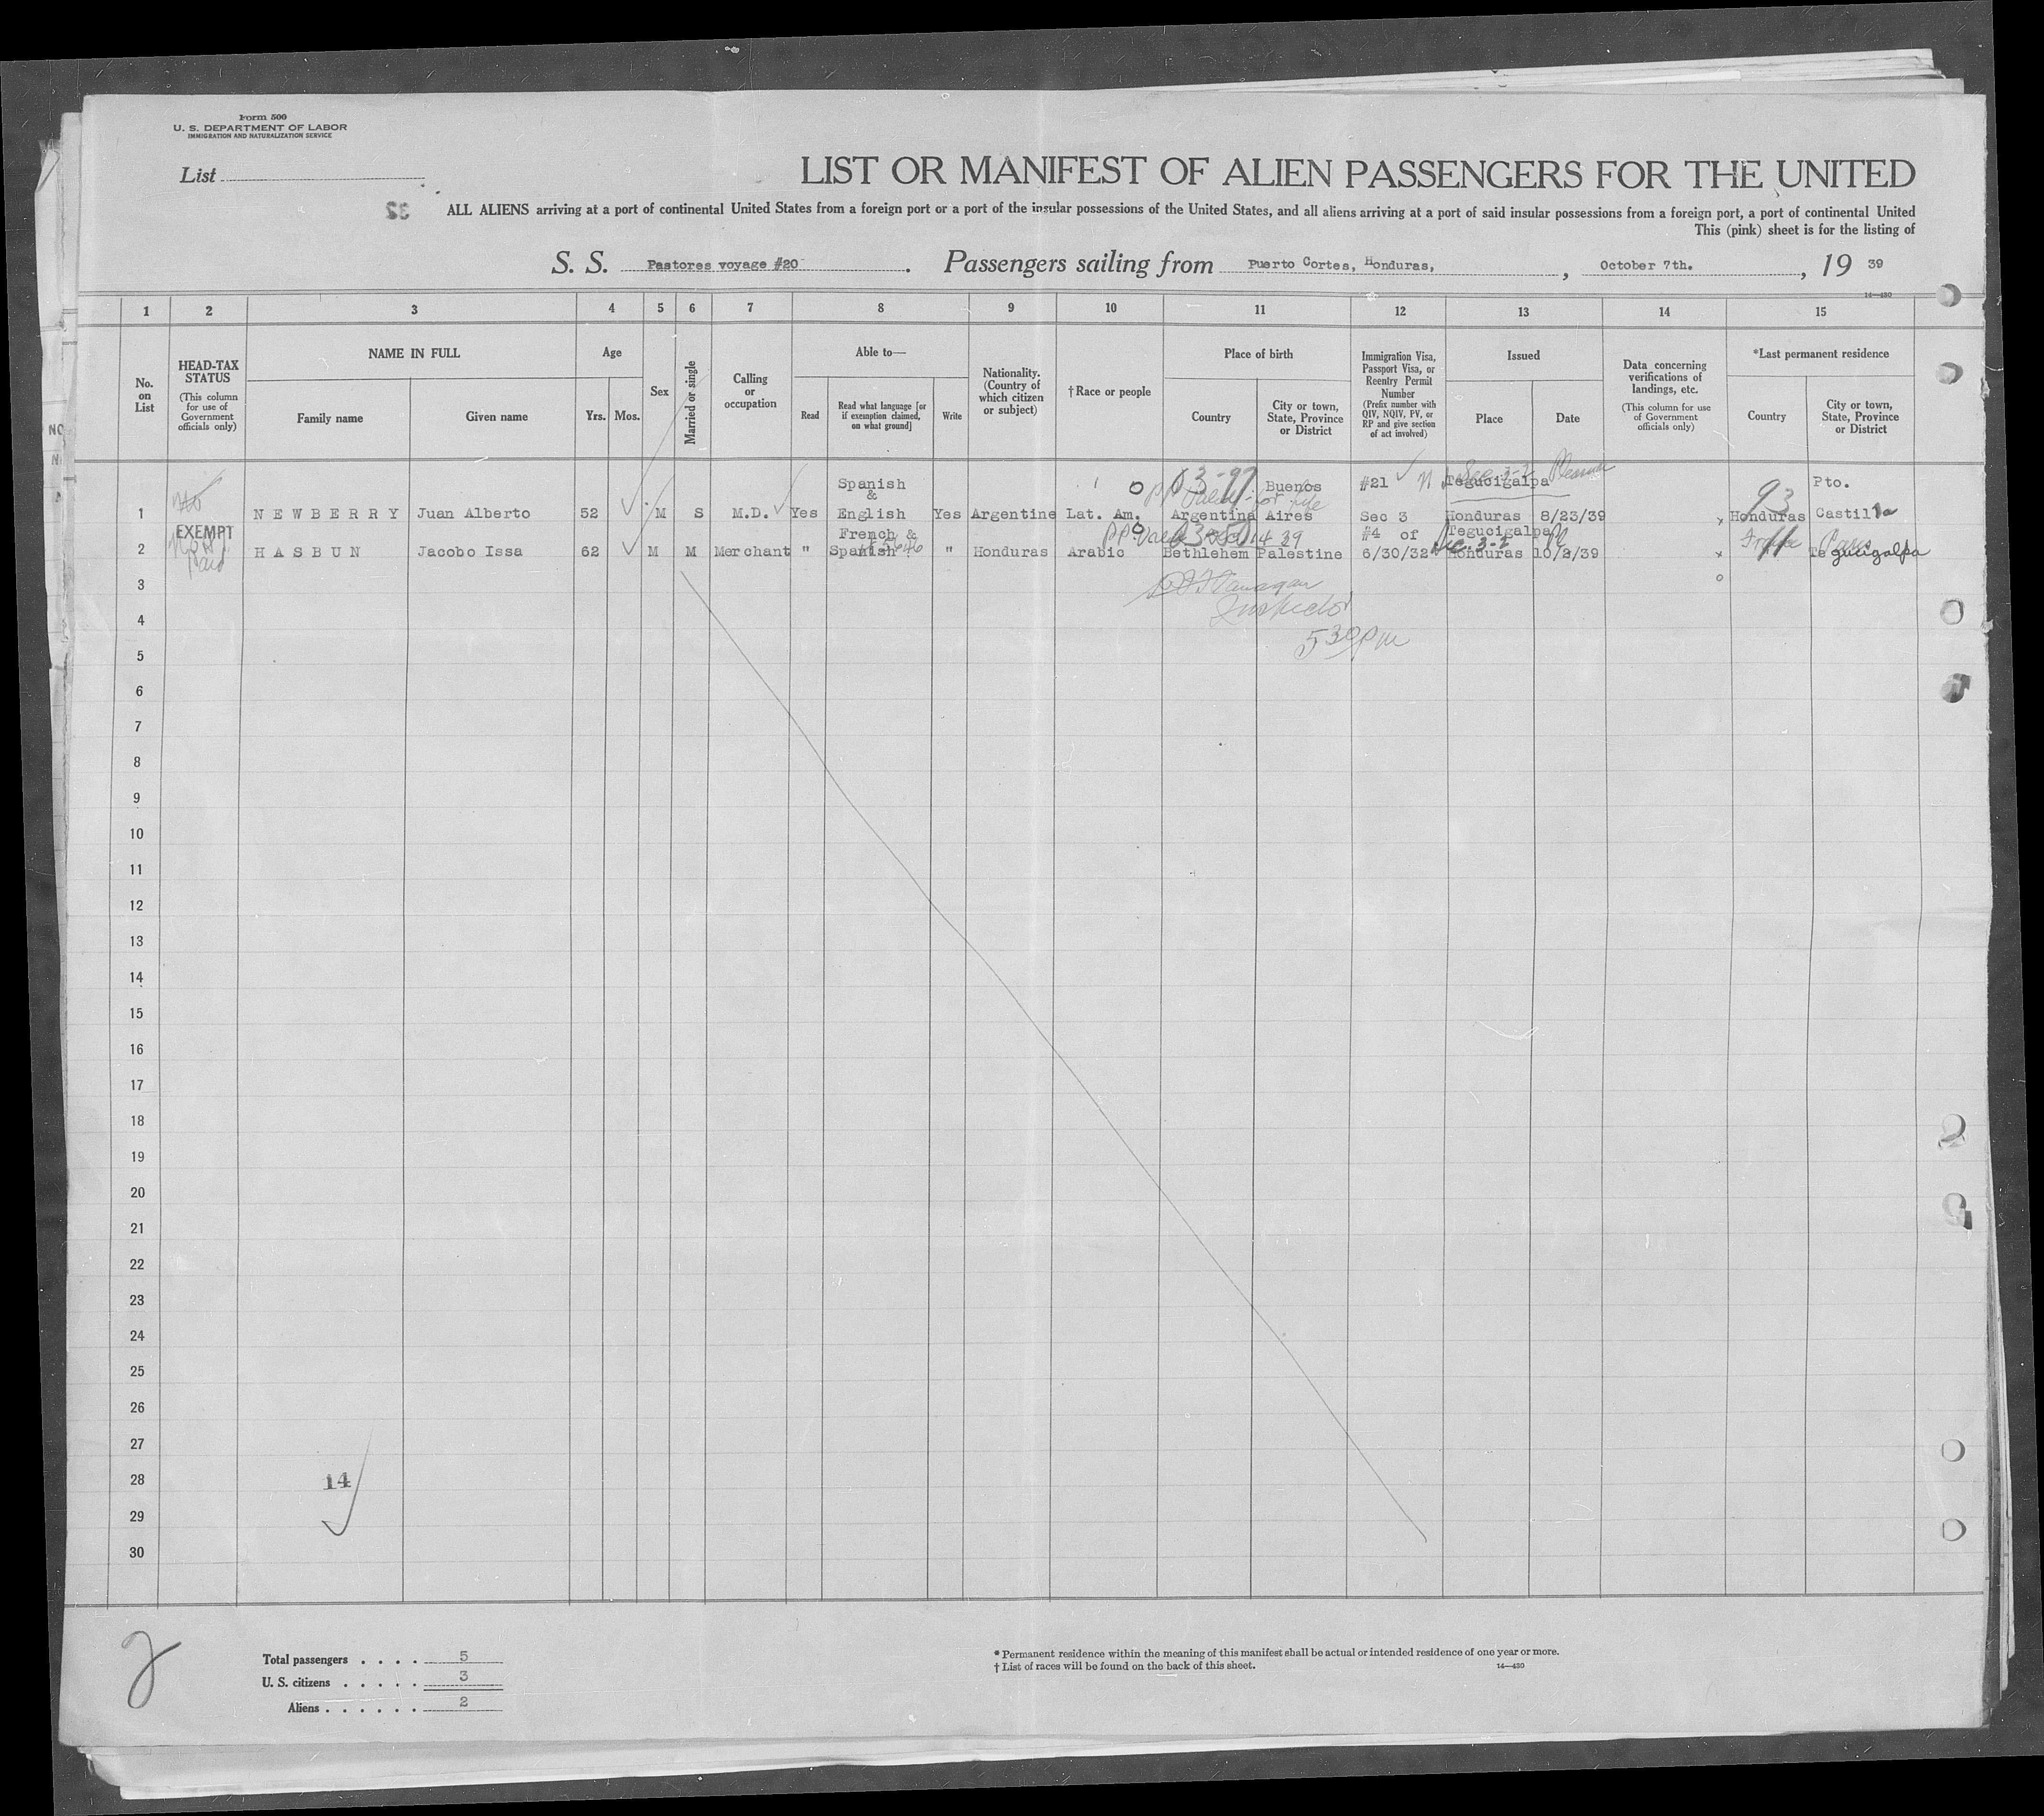 Form 500
U. S. DEPARTMENT OF LABOR
IMMIGRATION AND NATURALIZATION SERVICE
List
LIST OR MANIFEST OF ALIEN PASSENGERS FOR THE UNITED
32
ALL ALIENS arriving at a port of continental United States from a foreign port or a port of the insular possessions of the United States, and all aliens arriving at a port of said insular possessions from a foreign port, a port of continental United
This (pink) sheet is for the listing of
S. S. Pastores voyage #20. Passengers sailing from Puerto Cortes, Honduras, , October 7th. , 19 39
14—430
1 2 3 4 5 6 7 8 9 10 11 12 13 14 15
No. on List
HEAD-TAX STATUS
(This column for use of Government officials only)
NAME IN FULL
Family name
Given name
Age
Yrs.
Mos.
Sex
Married or single
Calling or occupation
Able to—
Read
Read what language [or if exemption claimed, on what ground]
Write
Nationality. (Country of which citizen or subject)
†Race or people
Place of birth
Country
City or town, State, Province or District
Immigration Visa, Passport Visa, or Reentry Permit Number
(Prefix number with QIV, NQIV, PV, or RP and give section of act involved)
Issued
Place
Date
Data concerning verifications of landings, etc.
(This column for use of Government officials only)
*Last permanent residence
Country
City or town, State, Province or District
Spanish & Buenos #21 Tegucigalpa 93 Pto.
1 NEWBERRY Juan Alberto 52 M S M.D. Yes English Yes Argentine Lat. Am. Argentina Aires Sec 3 Honduras 8/23/39 x Honduras Castilla
EXEMPT French & #4 of Tegucigalpa
2 HASBUN Jacobo Issa 62 M M Merchant " Spanish " Honduras Arabic Bethlehem Palestine 6/30/32 Honduras 10/2/39 x Tegucigalpa
Inspector
5 30 PM
3
4
5
6
7
8
9
10
11
12
13
14
15
16
17
18
19
20
21
22
23
24
25
26
27
28
14
29
30
2
Total passengers . . . . 5
U. S. citizens . . . . . 3
Aliens . . . . . . 2
* Permanent residence within the meaning of this manifest shall be actual or intended residence of one year or more.
† List of races will be found on the back of this sheet.
14—430